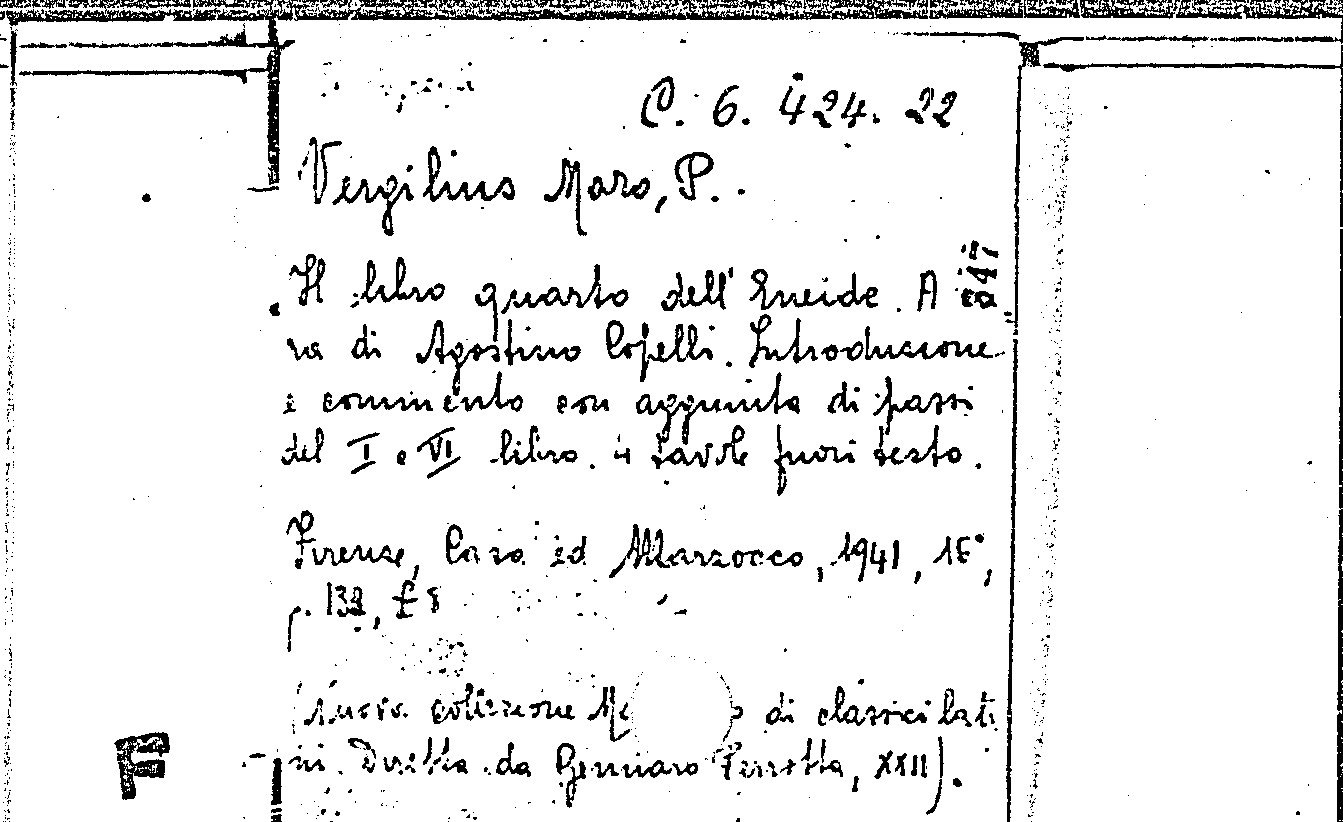 C. 6. 424. 22
Vergilius Maro, P.
Il libro quarto dell'Eneide. A
ra di Agostino Copelli. Introduzione
e commento con aggiunta di passi
del I e VI libro. 4 tavole fuori testo.
Firenze, Casa ed Marzocco, 1941, 16°,
p. 132, £ 8
(Nuova collezione M o di classici lati
ni. Diretta da Gennaro Perrotta, XXII).
F